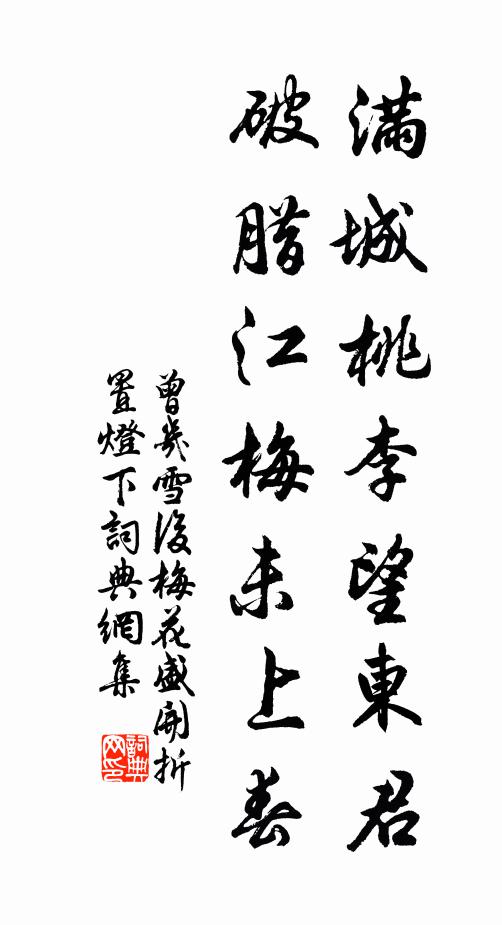 滿城桃李望東君
破腊江梅未上春
曾幾雪後梅花盛開折
置燈下詞典網集
詞典
网印